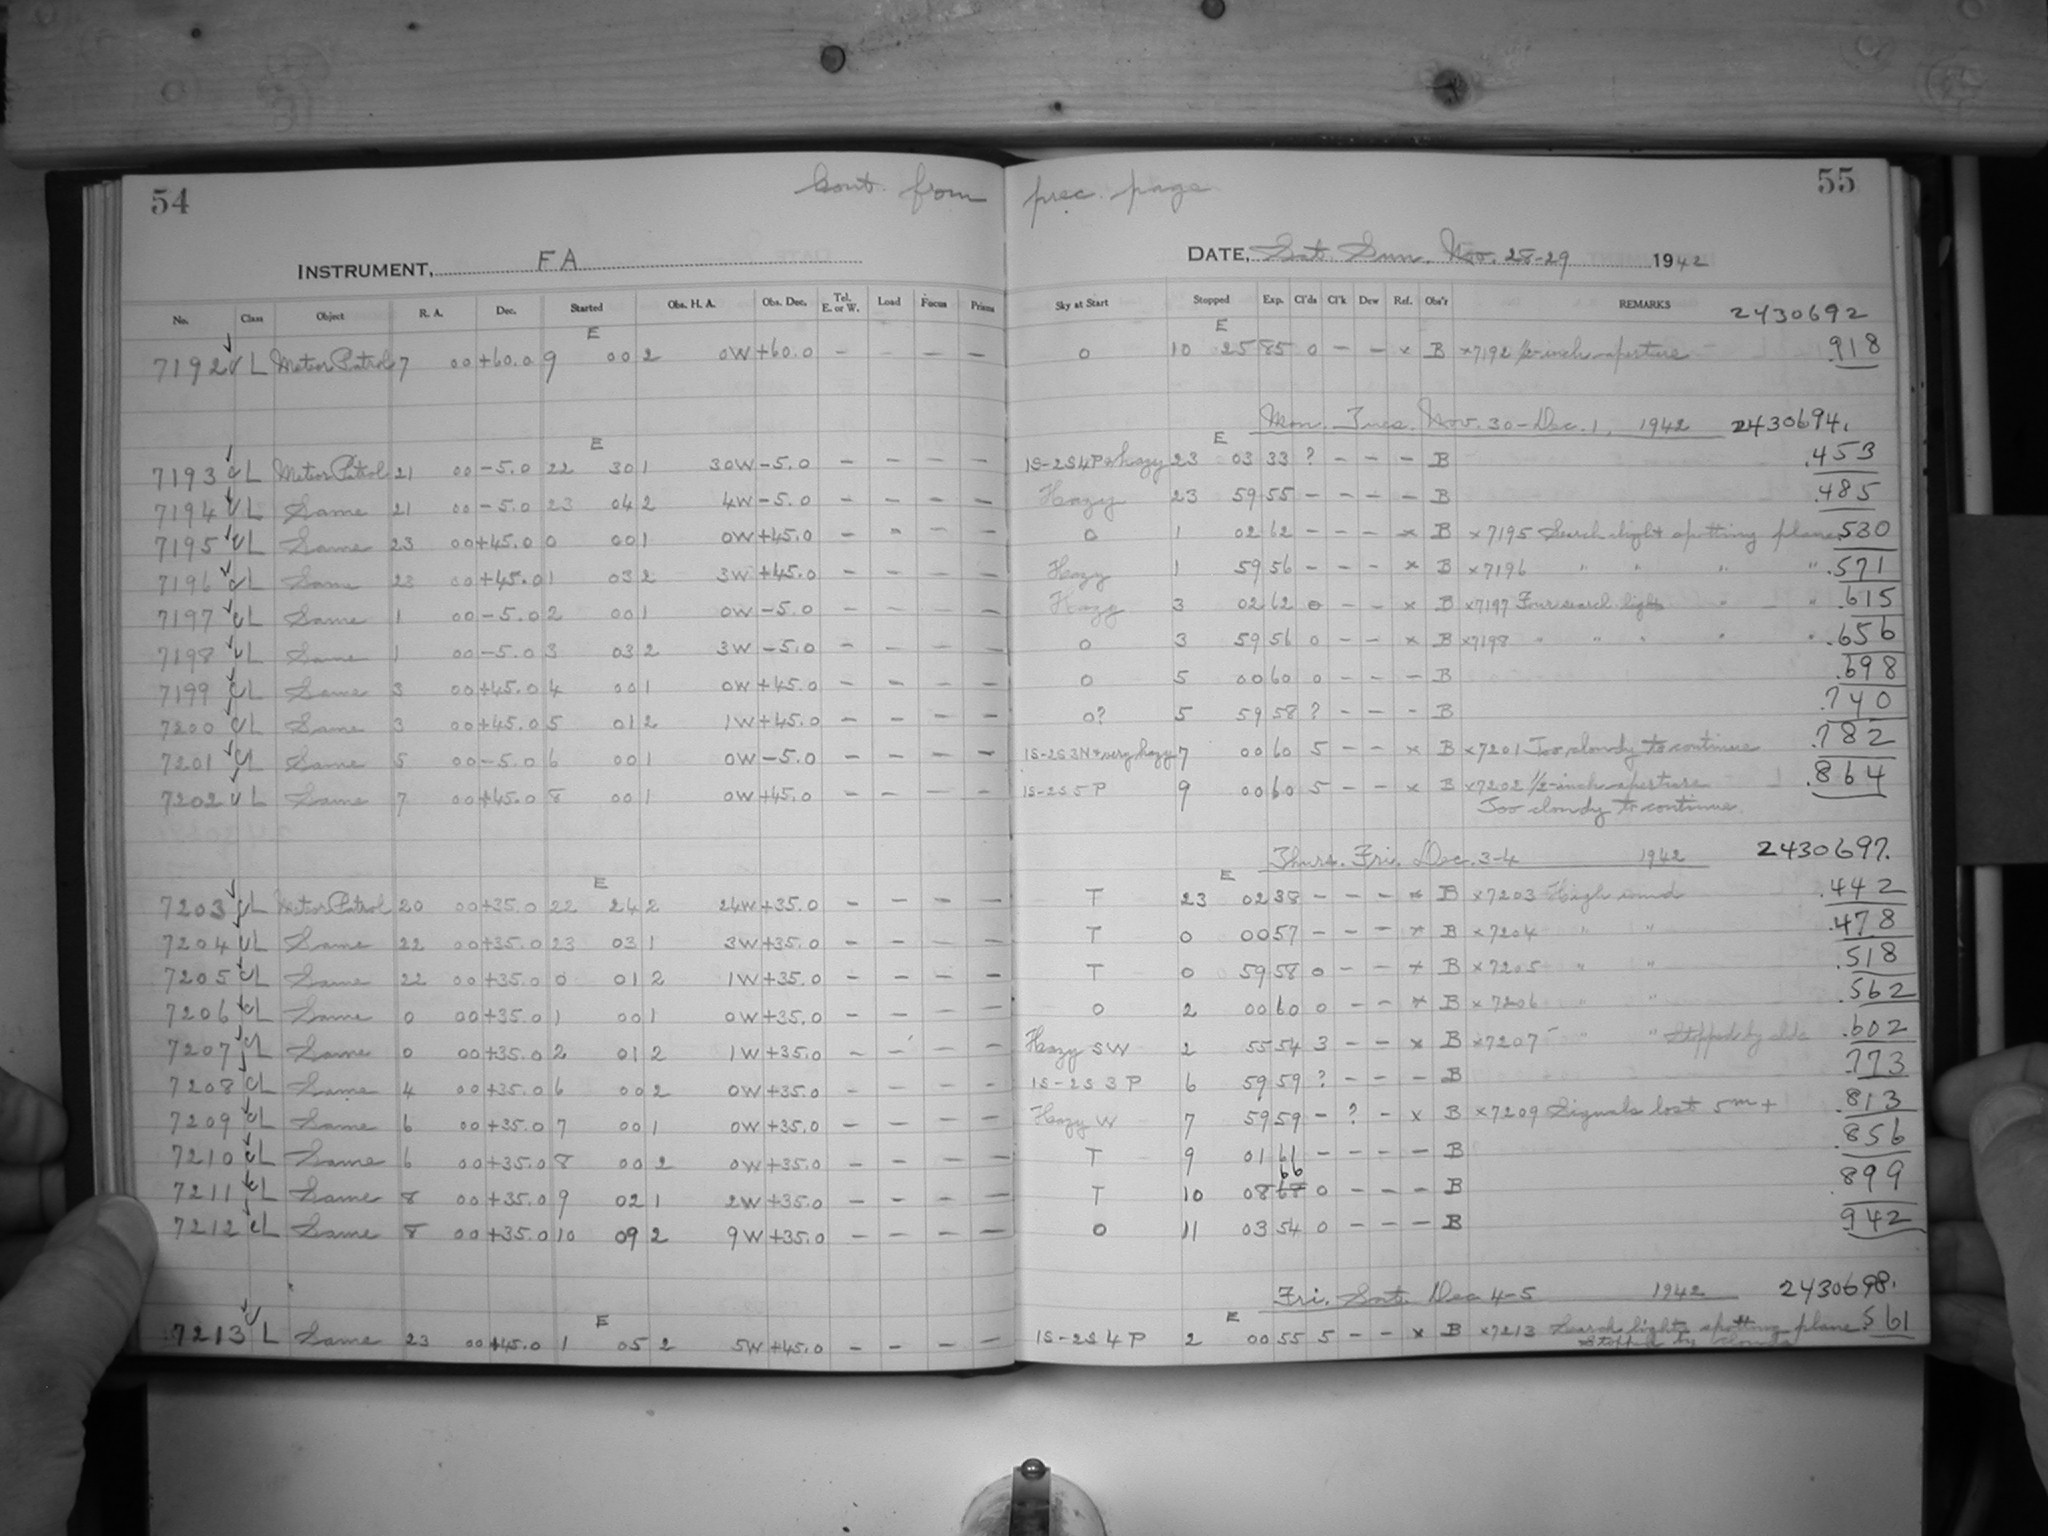 54 Cont. from prec. page 55
INSTRUMENT, FA DATE, Sat. Sun. Nov. 28-29 1942
No. Class Object R. A. Dec. Started Obs. H. A. Obs. Dec. Tel. E. or W. Load Focus Prisms Sky at Start Stopped Exp. Cl'ds Cl'k Dew Ref. Obs'r REMARKS 2430692
E E
7192 L Meteor Patrol 7 00 +60.0 9 00 2 0W +60.0 - - - - 0 10 25 85 0 - - x B x7192 1/2-inch aperture .918
Mon. Tues. Nov. 30-Dec. 1, 1942 2430694.
E E
7193 L Meteor Patrol 21 00 -5.0 22 30 1 30W -5.0 - - - - 1S-2S4P+hazy 23 03 33 ? - - - B .453
7194 L Same 21 00 -5.0 23 04 2 4W -5.0 - - - - Hazy 23 59 55 - - - - B .485
7195 L Same 23 00 +45.0 0 00 1 0W +45.0 - - - - 0 1 02 62 - - - x B x7195 Search light spotting plane .530
7196 L Same 23 00 +45.0 1 03 2 3W +45.0 - - - - Hazy 1 59 56 - - - x B x7196 " " " " .571
7197 L Same 1 00 -5.0 2 00 1 0W -5.0 - - - - Hazy 3 02 62 0 - - x B x7197 Four search lights " " .615
7198 L Same 1 00 -5.0 3 03 2 3W -5.0 - - - - 0 3 59 56 0 - - x B x7198 " " " " " .656
7199 L Same 3 00 +45.0 4 00 1 0W +45.0 - - - - 0 5 00 60 0 - - - B .698
7200 L Same 3 00 +45.0 5 01 2 1W +45.0 - - - - 0? 5 59 58 ? - - - B .740
7201 L Same 5 00 -5.0 6 00 1 0W -5.0 - - - - 1S-2S3N+very hazy 7 00 60 5 - - x B x7201 Too cloudy to continue .782
7202 L Same 7 00 +45.0 8 00 1 0W +45.0 - - - - 1S-2S5P 9 00 60 5 - - x B x7202 1/2-inch aperture .864
Too cloudy to continue.
Thurs. Fri. Dec. 3-4 1942 2430697.
E E
7203 L Meteor Patrol 20 00 +35.0 22 24 2 24W +35.0 - - - - T 23 02 38 - - - x B x7203 High wind .442
7204 L Same 22 00 +35.0 23 03 1 3W +35.0 - - - - T 0 00 57 - - - x B x7204 " " .478
7205 L Same 22 00 +35.0 0 01 2 1W +35.0 - - - - T 0 59 58 0 - - x B x7205 " " .518
7206 L Same 0 00 +35.0 1 00 1 0W +35.0 - - - - 0 2 00 60 0 - - x B x7206 " " .562
7207 L Same 0 00 +35.0 2 01 2 1W +35.0 - - - - Hazy SW 2 55 54 3 - - x B x7207 " " Stopped by clds .602
7208 L Same 4 00 +35.0 6 00 2 0W +35.0 - - - - 1S-2S 3 P 6 59 59 ? - - - B .773
7209 L Same 6 00 +35.0 7 00 1 0W +35.0 - - - - Hazy W 7 59 59 - ? - x B x7209 Signals lost 5m+ .813
7210 L Same 6 00 +35.0 8 00 2 0W +35.0 - - - - T 9 01 61 - - - - B .856
66
7211 L Same 8 00 +35.0 9 02 1 2W +35.0 - - - - T 10 08 68 0 - - - B .899
7212 L Same 8 00 +35.0 10 09 2 9W +35.0 - - - - 0 11 03 54 0 - - - B 942
Fri. Sat. Dec 4-5 1942 2430698.
E E
7213 L Same 23 00 +45.0 1 05 2 5W +45.0 - - - - 1S-2S4P 2 00 55 5 - - x B x7213 Search lights spotting plane .561
Stopped by clouds